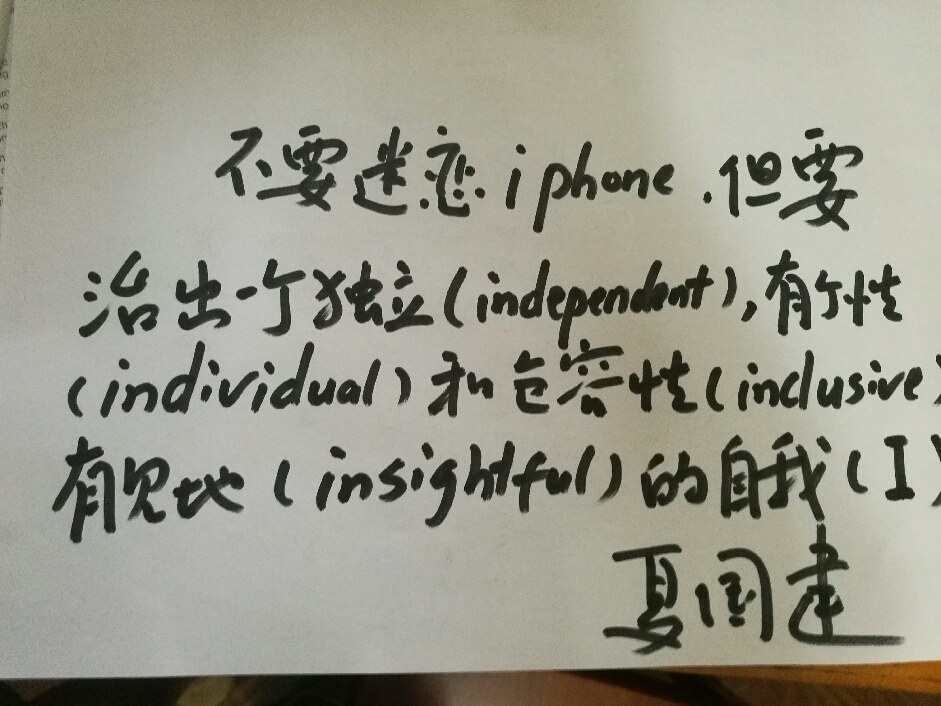 不要迷恋iphone,但要
治出一个独立(independent),有个性
(individual)和包容性(inclusive)
有见地(insightful)的自我(I)
夏国建